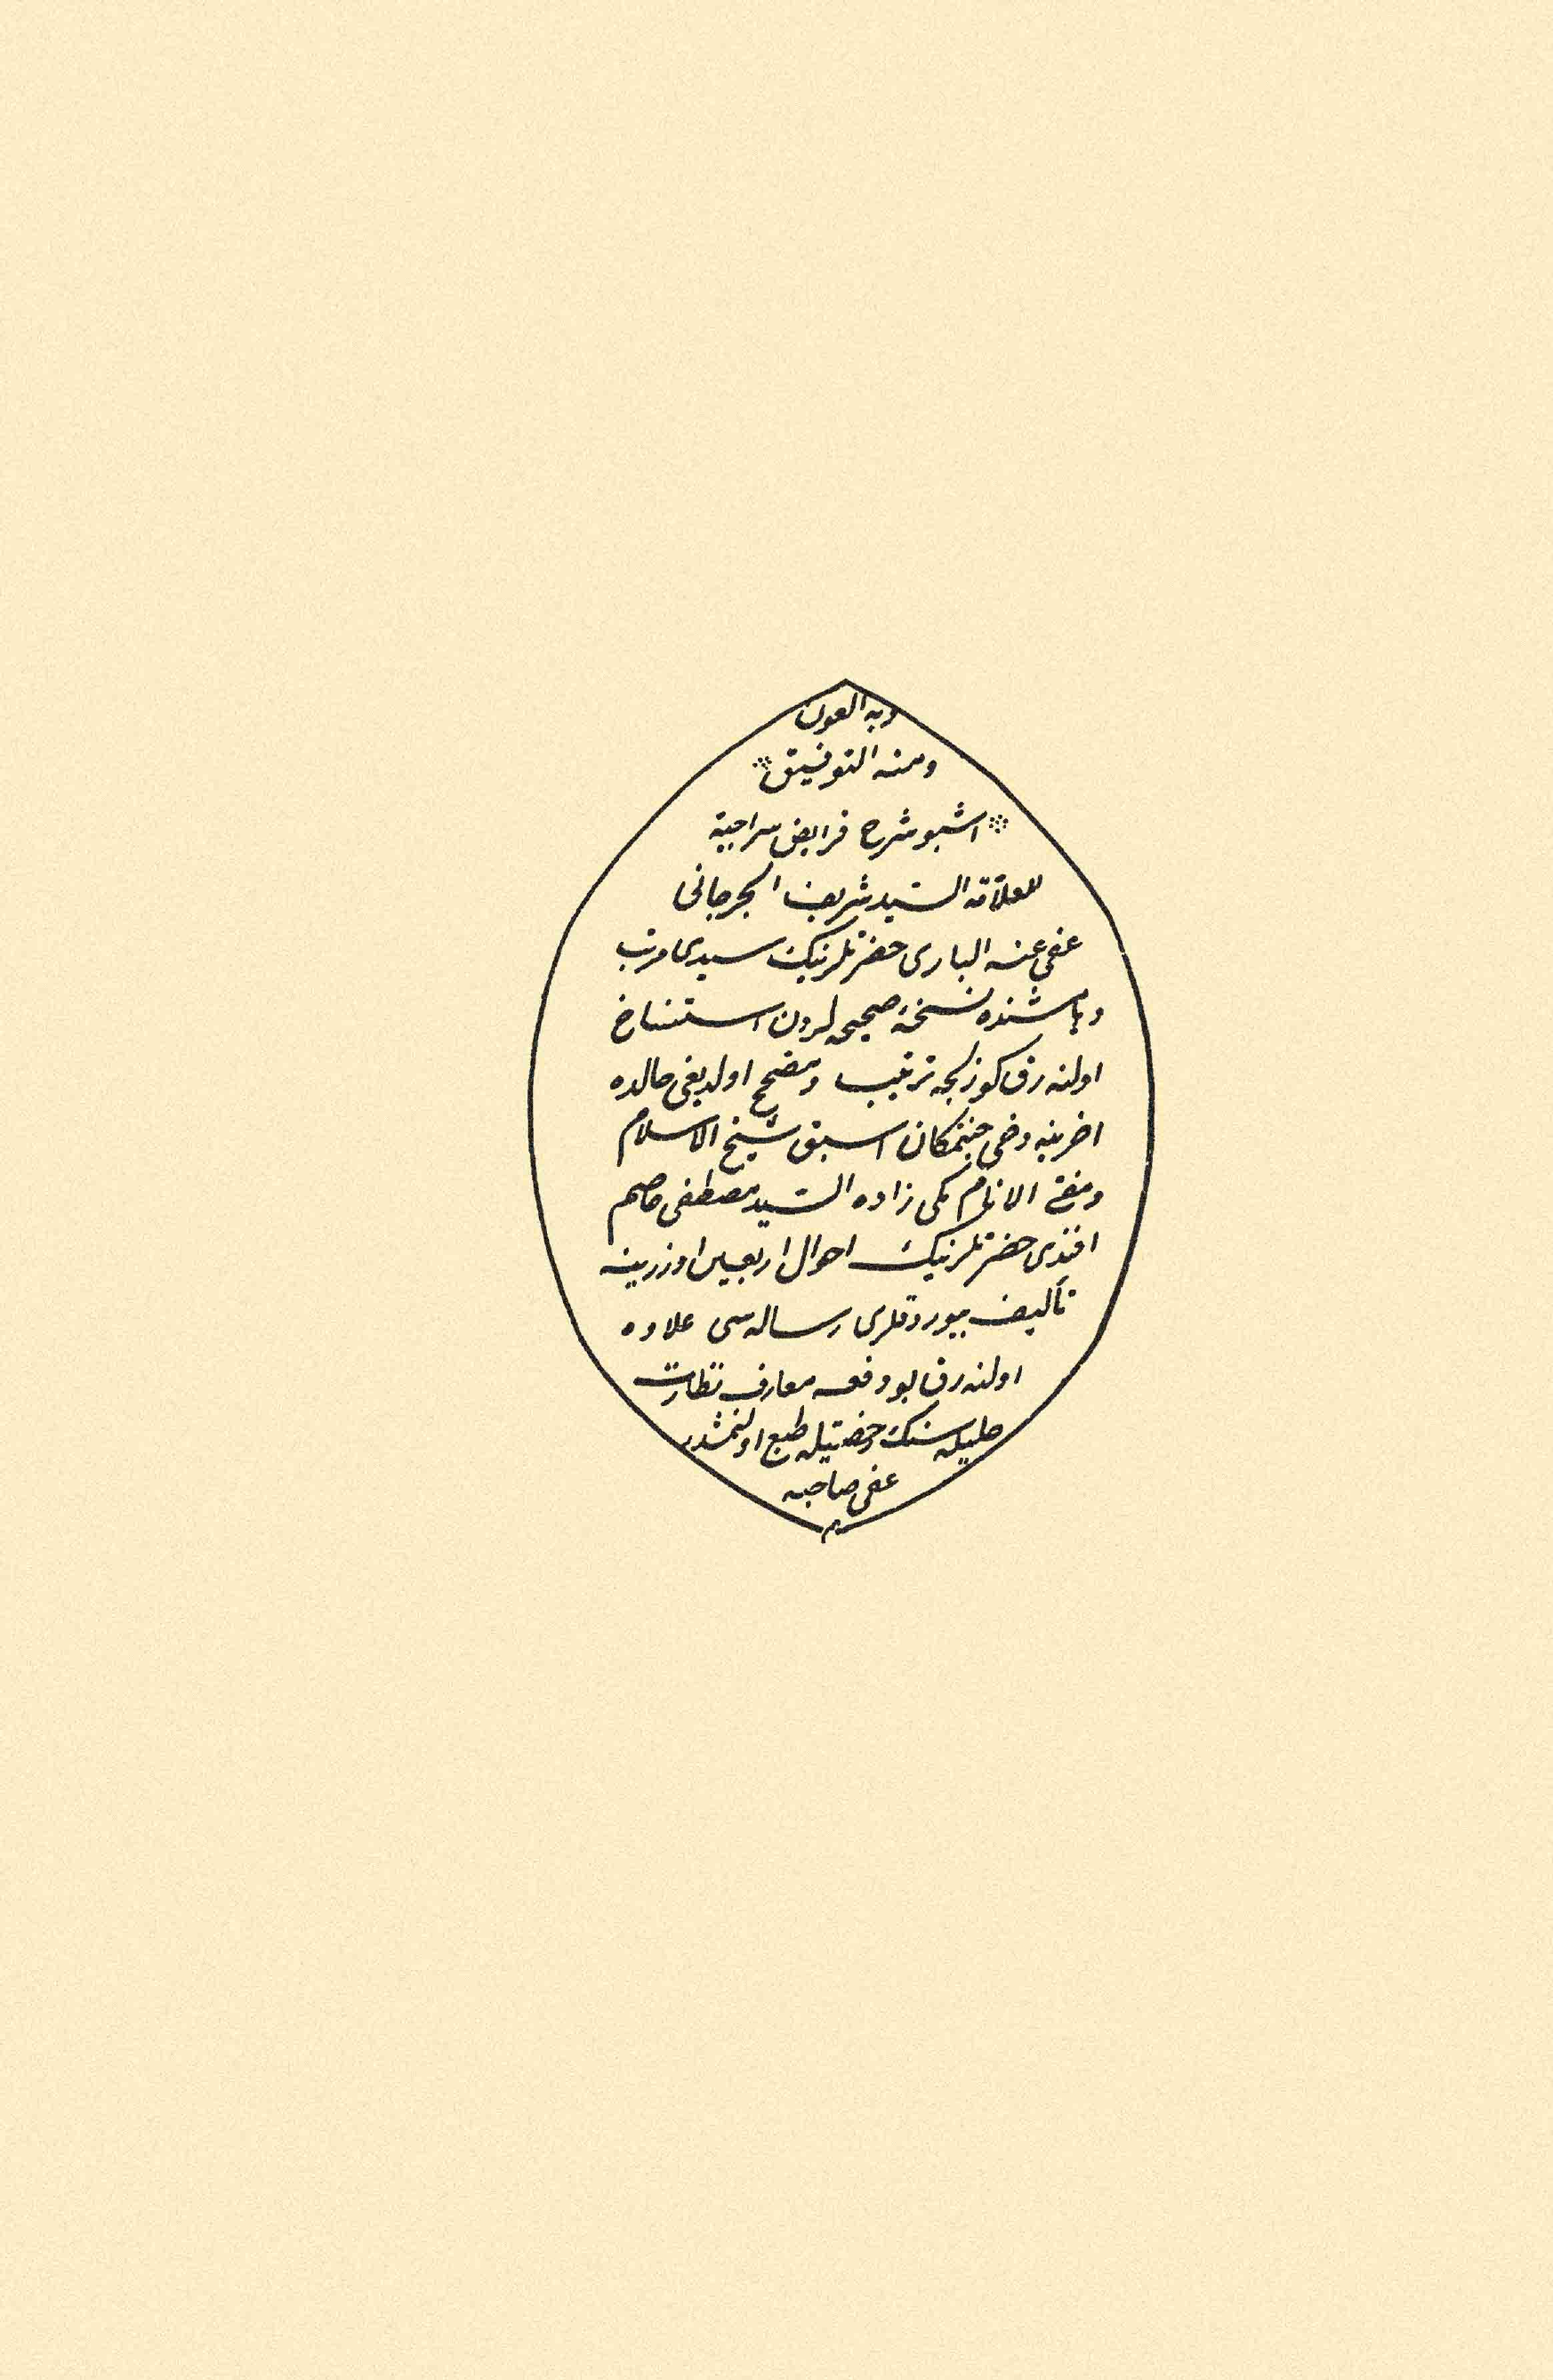 وبه العون
ومنه التوفيق
اشبو شرح فرايض سراجية
للعلامه السيد شريف الجرجانى
عفى عنه البارى حضرتلرينك سيدى مرتب
نسخهٔ صحيحه لردن استنساخ
اولنه رق كوزلجه ترتيب ومصحح اولديغى حالده
اخرينه دخى جنتمكان اسبق شيخ الاسلام
ومفتى الانام مكى زاده السيد مصطفى عاصم
افندى حضرتلرينك احوال اربعين اوزرينه
تأليف بيوردقلرى رساله سى علاوه
اولنه رق بو دفعه معارف نظارت
جليله سنك رخصتيله طبع اولنمشدر
عفى صاحبه
م